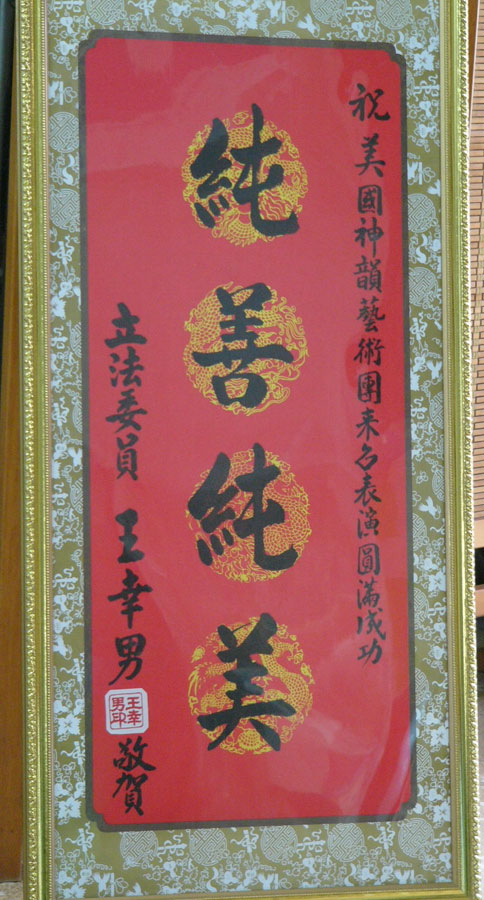 祝美國神韻藝術團来台表演圓滿成功
純善純美
立法委員 王幸男 敬賀
王幸男印